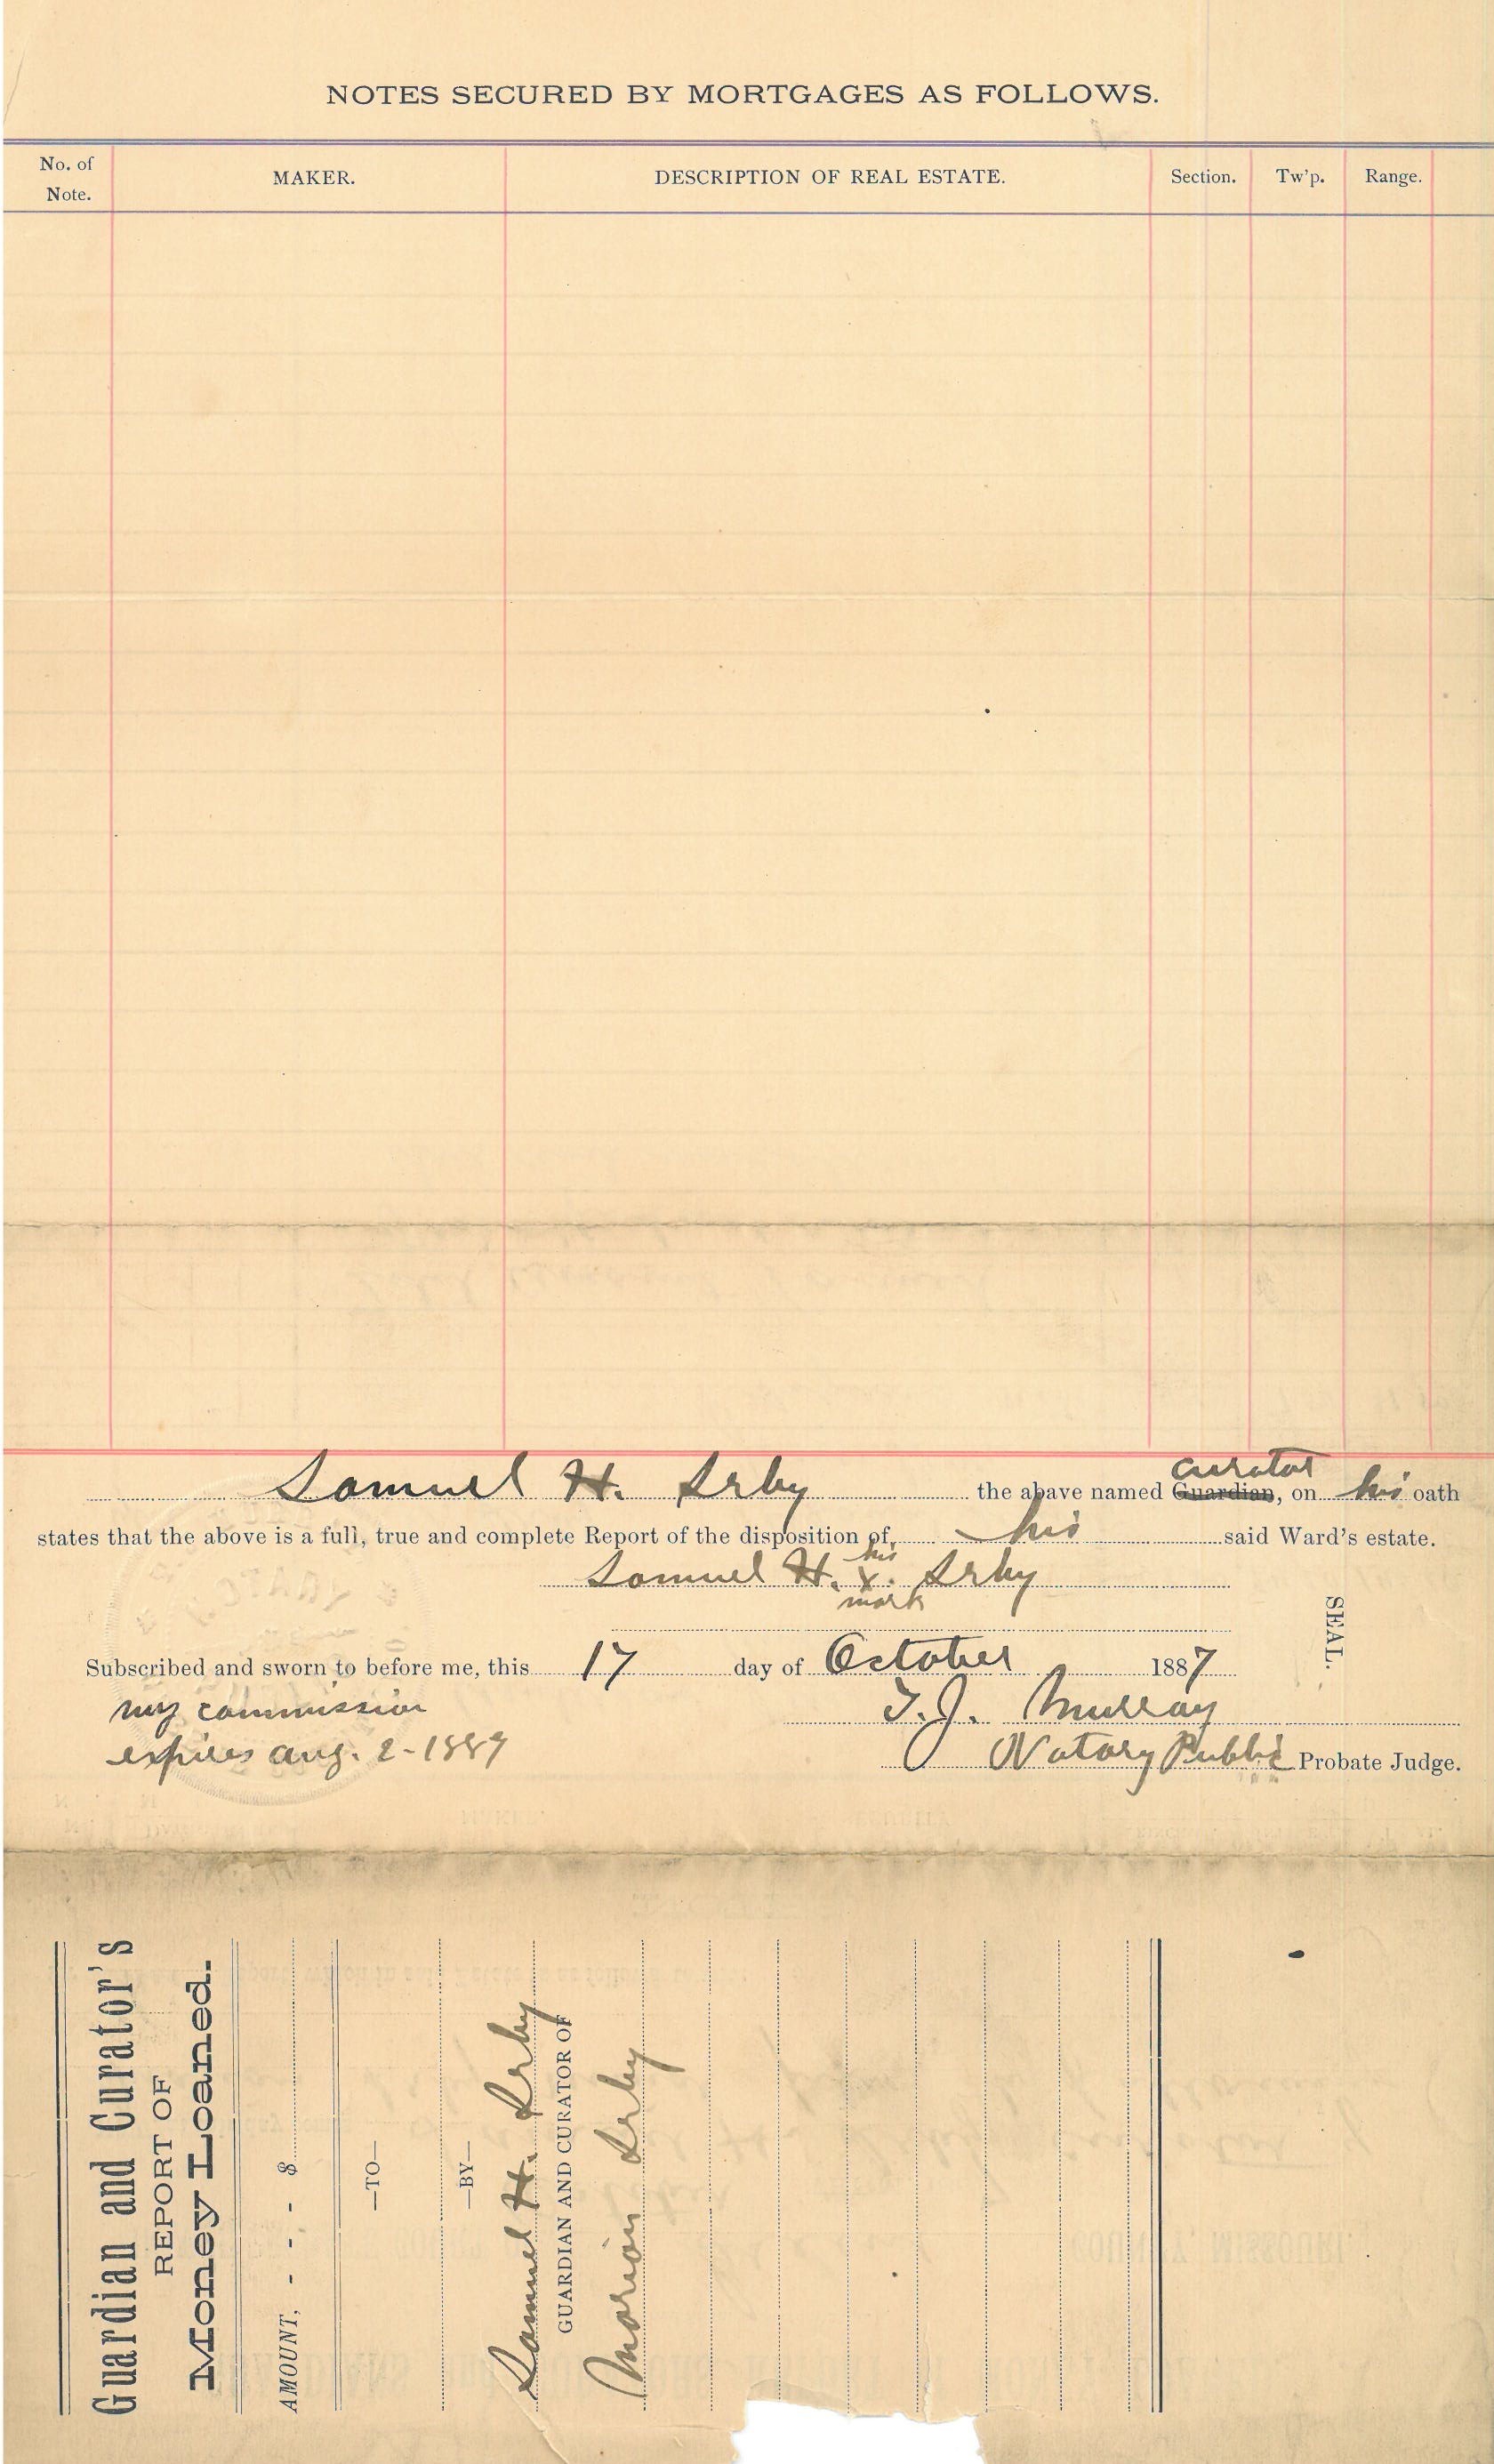 NOTES SECURED BY MORTGAGES AS FOLLOWS.
No. of Note. MAKER. DESCRIPTION OF REAL ESTATE. Section. Tw'p. Range.
curator
Samuel H. Irby the above named Guardian, on his oath
states that the above is a full, true and complete Report of the disposition of his said Ward's estate.
his
Samuel H. x. Irby
mark
SEAL.
Subscribed and sworn to before me, this 17 day of October 1887
my commission T.J. Murray
expires aug. 2-1889 Notary Public Probate Judge.
Guardian and Curator's
REPORT OF
Money Loaned.
AMOUNT, - - - $
—TO—
—BY—
Samuel H. Irby
GUARDIAN AND CURATOR OF
Marion Irby